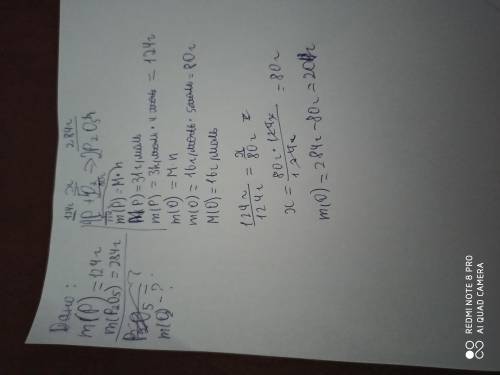 Дано:
m(P) = 124г
m(P2O5) = 284г
m(O) - ?
124г x 284г
4P + O2 → 2P2O5
m(P) = M·n
M(P) = 31г/моль
m(P) = 31г/моль · 4 моль = 124г
m(O) = M n
m(O) = 16г/моль · 5моль = 80г
M(O) = 16г/моль
124г/124г = x/80г
x = 80г · 124г/124г = 80г
m(O) = 284г - 80г = 204г
REDMI NOTE 8 PRO
AI QUAD CAMERA